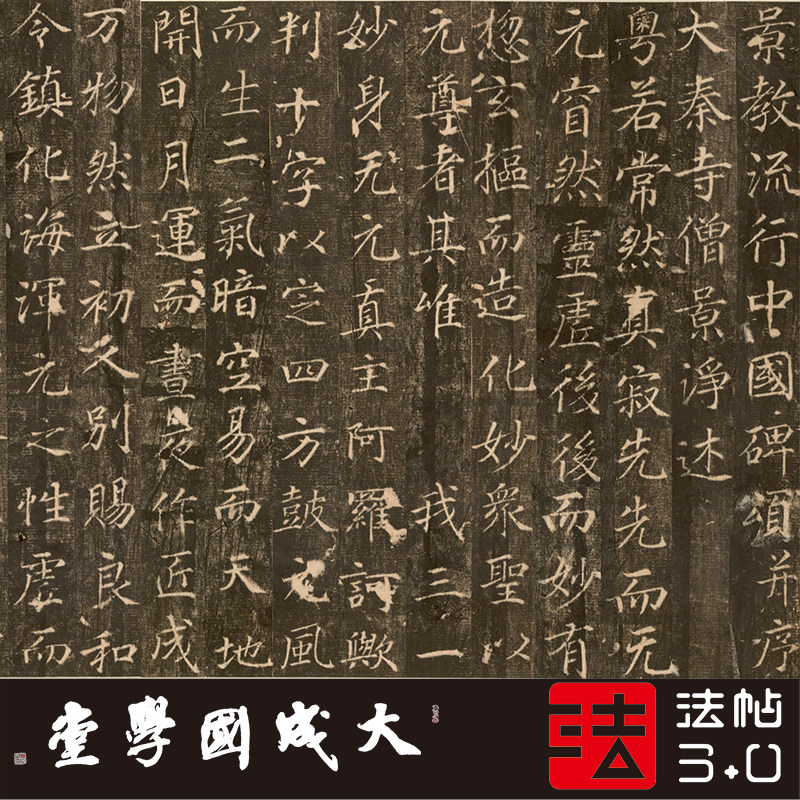 景教流行中國碑頌并序
大秦寺僧景淨述
粵若常然真寂先先而无
元窅然靈虛後後而妙有
惣玄摳而造化妙眾聖以
元尊者其唯 我三一
妙身无元真主阿羅訶歟
判十字以定四方鼓元風
而生二氣暗空易而天地
開日月運而晝夜作匠成
万物然立初人別賜良和
令鎮化海渾元之性虛而
大成國學堂
法
法帖
3.0